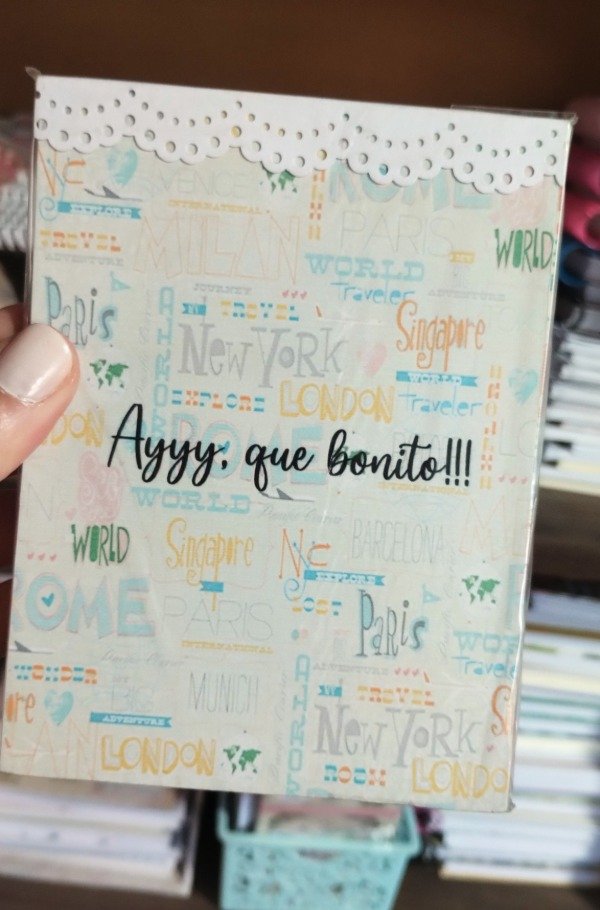 NYC VENICE ROME
EXPLORE INTERNATIONAL
TRAVEL MILAN PARIS WORLD
ADVENTURE WORLD
JOURNEY Traveler ADVENTURE
Paris BY TRAVEL Singapore
New York WORLD
EXPLORE LONDON Traveler
DON ROME
Ayyy, que bonito!!!
WORLD INTERNATIONAL
WORLD Singapore NYC BARCELONA
EXPLORE
ROME PARIS LOST Paris
INTERNATIONAL WORLD
WONDER ADVENTURE Travele
BIG MUNICH BY TRAVEL
ADVENTURE New York
LAN LONDON ROOM LONDO